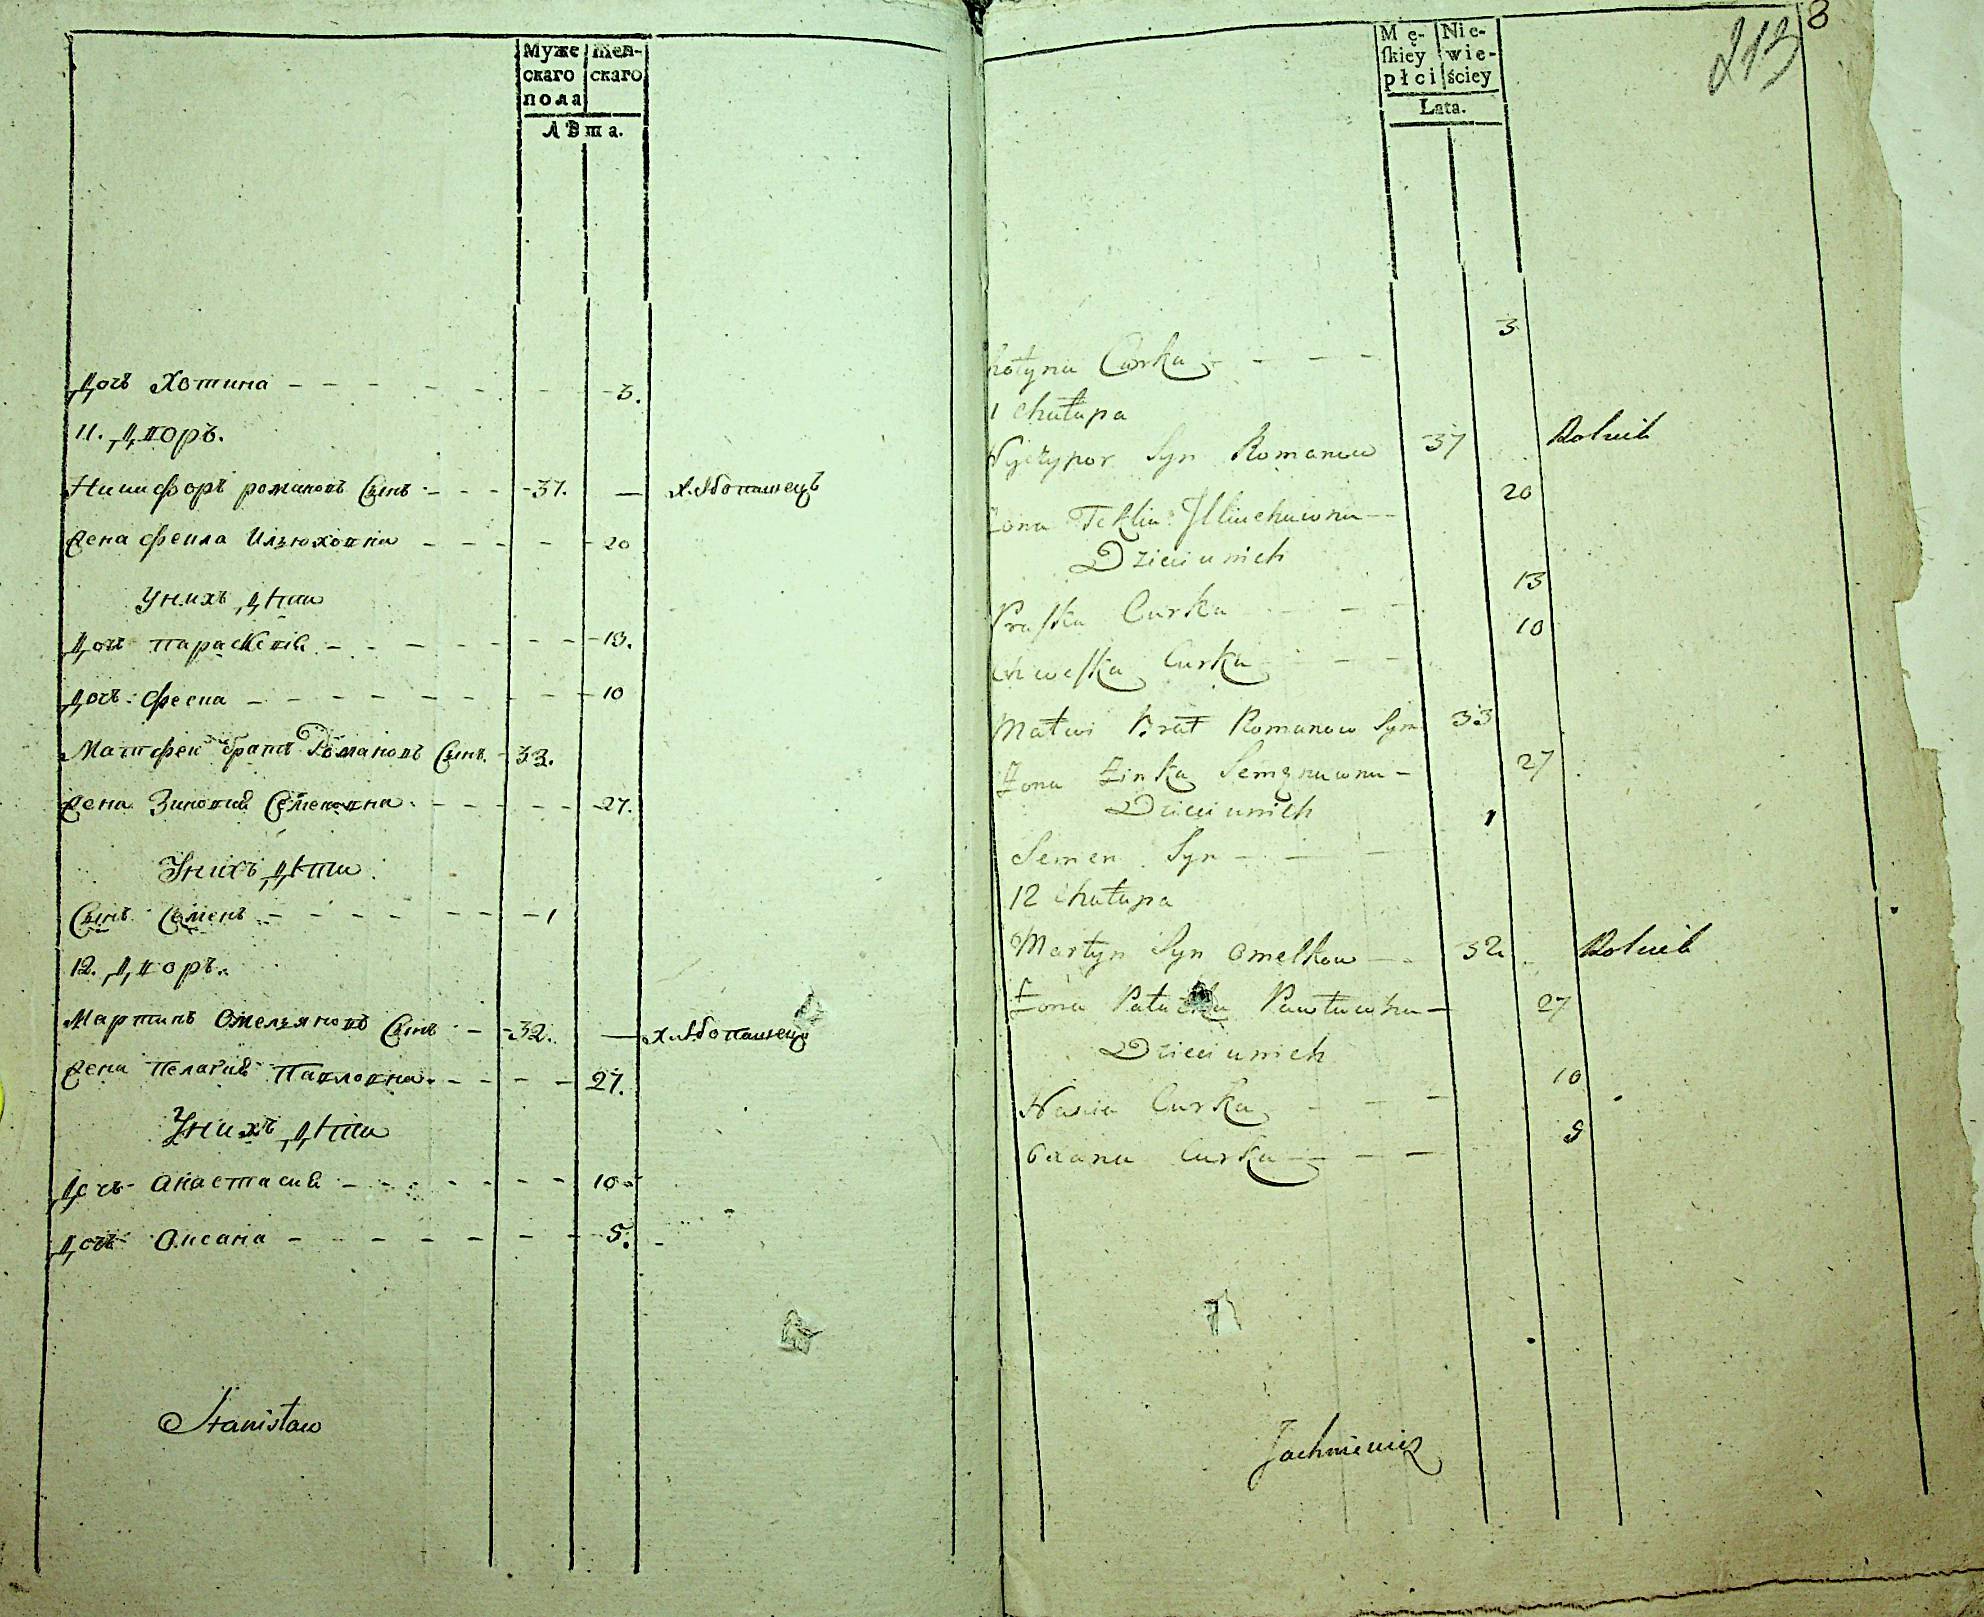 Муже Жен-
скаго скаго
пола
Лѣта.
Дочь Хотина - - - 3.
11. Дворъ.
Никифоръ романовъ Сынъ - - - 37. — хлѣбопашецъ
Жена Фекла Ильюховна - - - 20
У нихъ дѣти
Дочь параскевия - - - 13.
Дочь Фесна - - - 10
Матфей братъ Романовъ Сынъ - 33.
Жена Зиновия Семеновна - - - 27.
У нихъ дѣти
Сынъ Семенъ - - - 1
12. Дворъ.
Мартинъ Омельяновъ Сынъ - 32. — хлѣбопашецъ
Жена Пелагия Павловна - - - 27.
У нихъ дѣти
Дочь Анастасия - - - 10
Дочь Оксана - - - 5.
Stanisław
Mę- Nie-
ſkiey wie-
płci ściey
Lata.
213
8
Curka - - - 3
chałupa
Syn Romanow 37 Rolnik
Zona Tekla Illiuchuwna - 20
Dzieci u nich
Praſka Curka - - 13
Curka - - 10
Matwi Brat Romanow Syn 33
Żona Żinka - 27
Dzieci u nich
Semen Syn - - - 1
12 chałupa
Martyn Syn Omelkow - 32 Rolnik
Żona - 27
Dzieci u nich
Nasia Curka - - - 10
Oxana Curka - - -
Jachniewicz